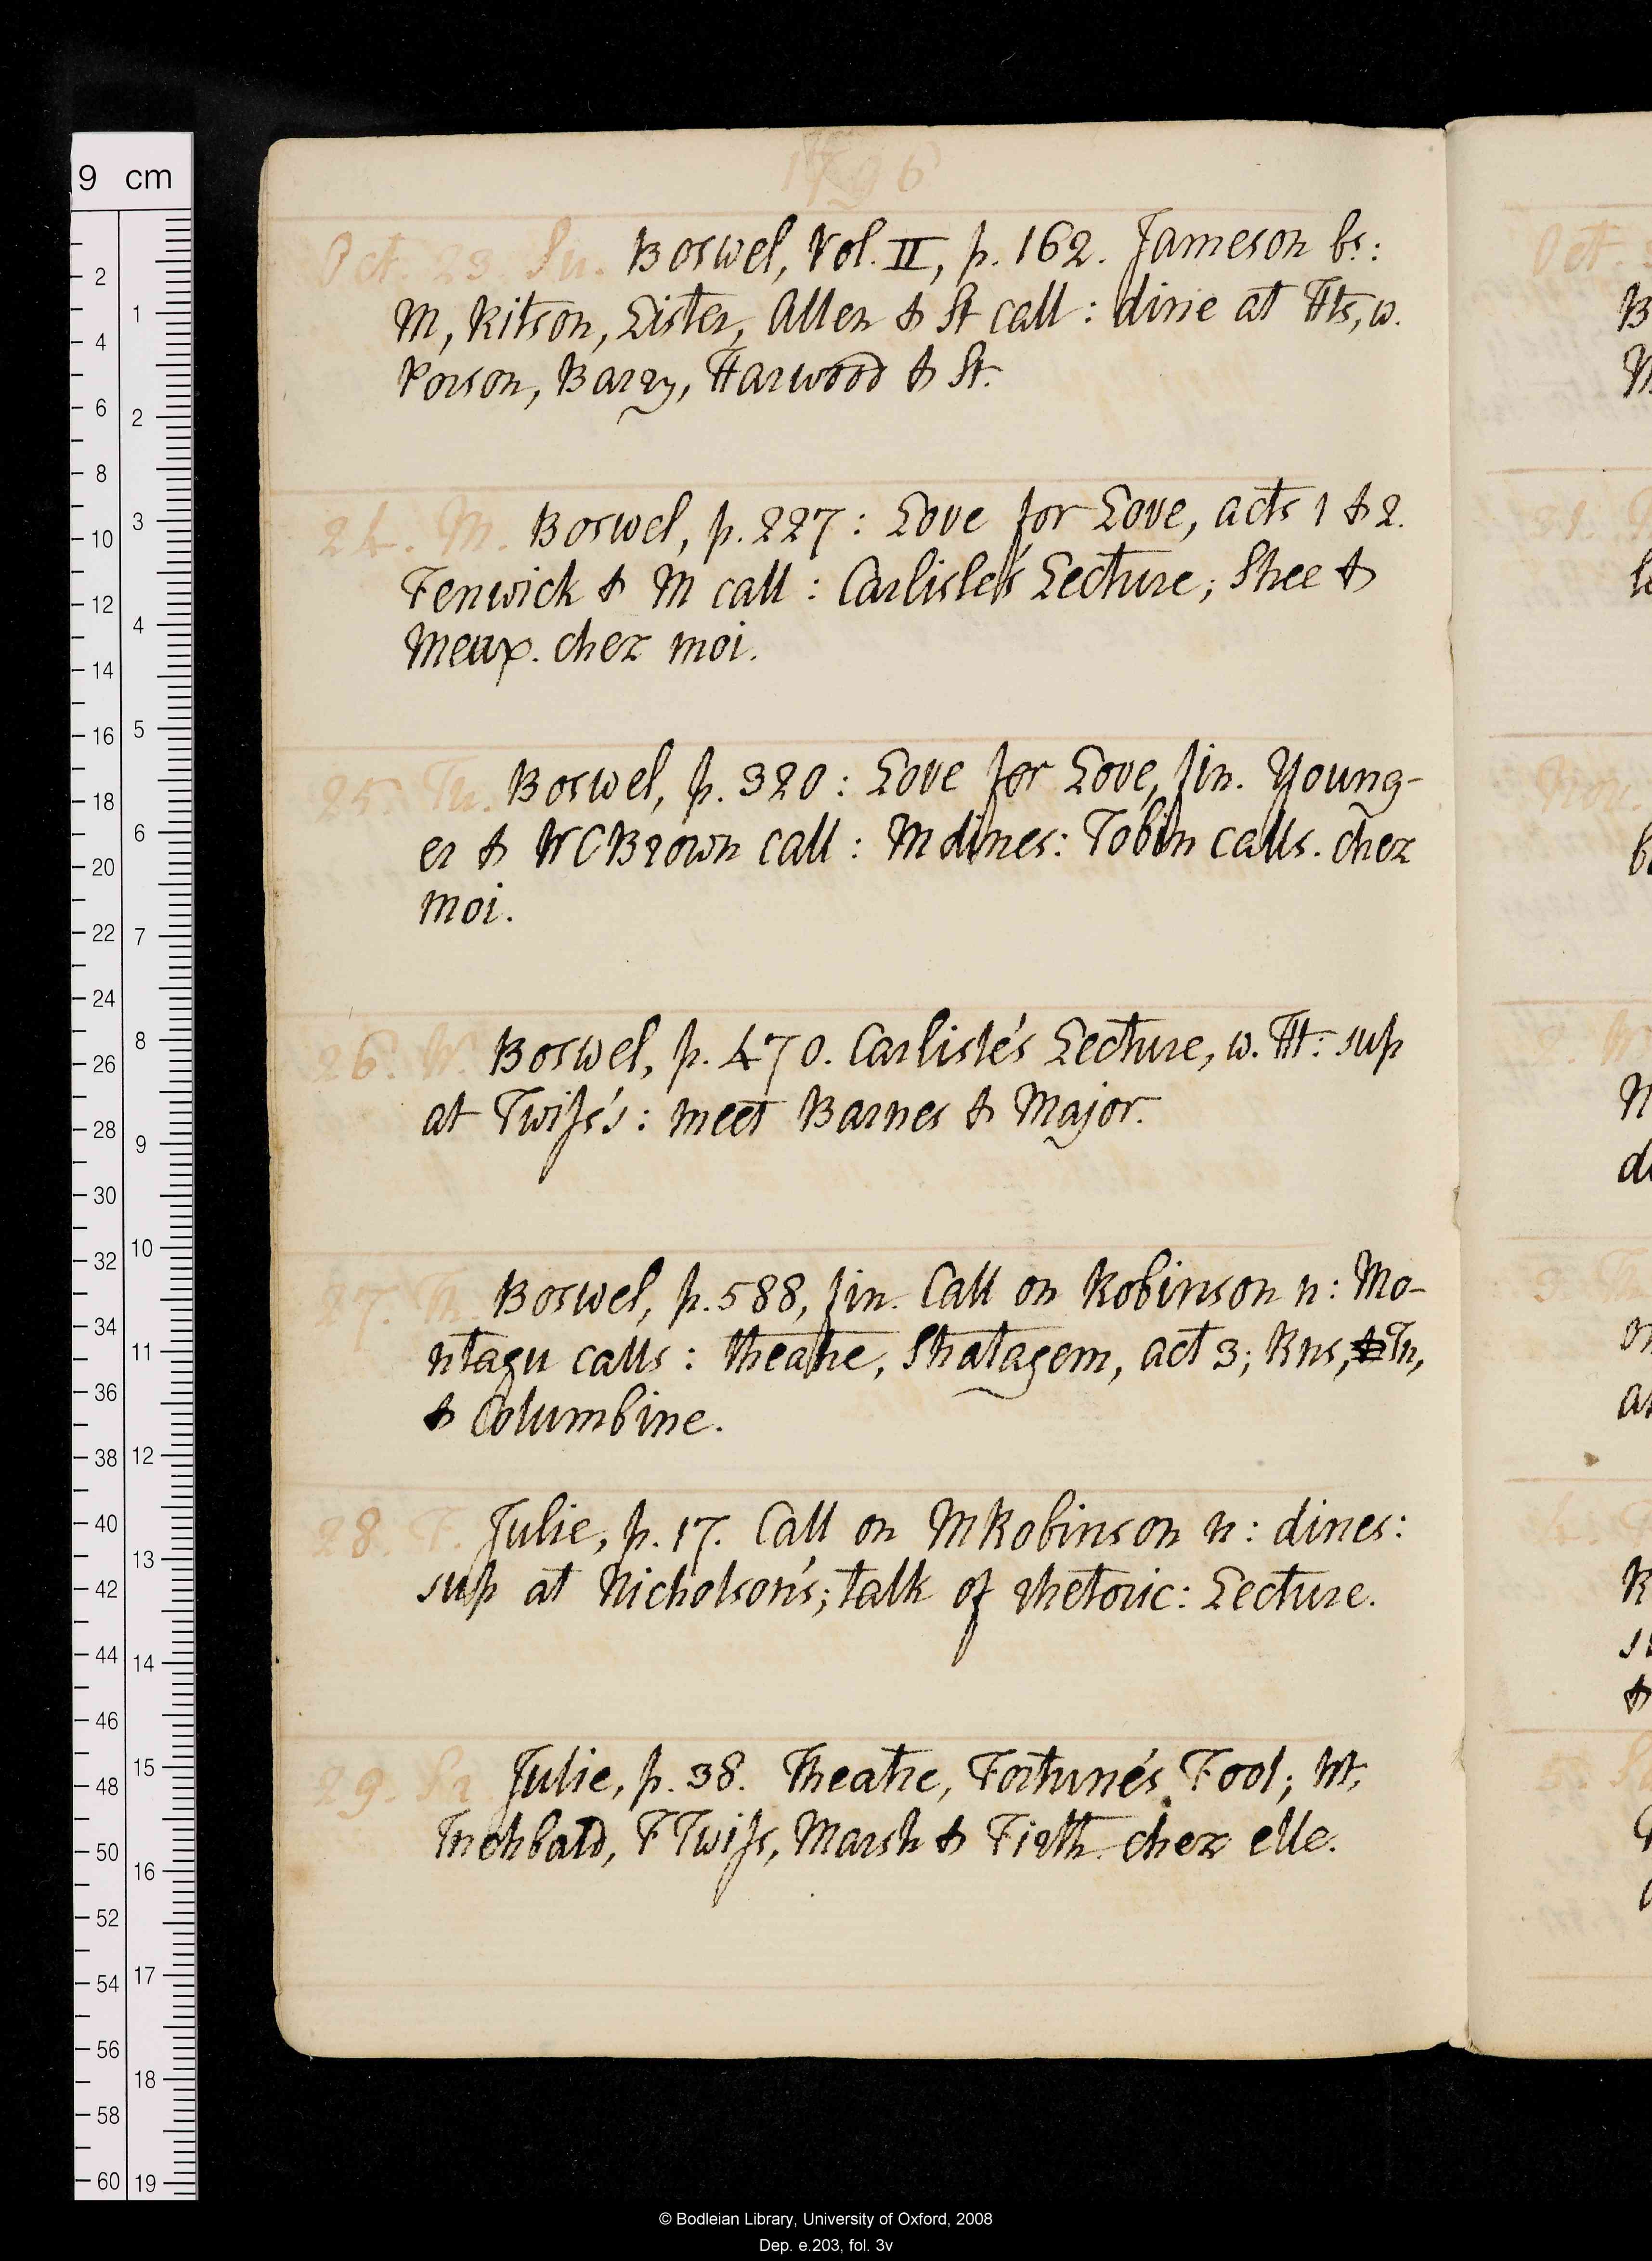 1796
Oct. 23. Su. Boswel, Vol. II, p. 162. Jameson bs:
M, Ritson, Lister, Allen & St call: dine at Hts, w.
Porson, Barry, Harwood & St.
24. M. Boswel, p. 227: Love for Love, acts 1 & 2.
Fenwick & M call: Carlisle's Lecture; Shee &
Meux. chez moi.
25. Tu. Boswel, p. 320: Love for Love, fin. Young-
er & W C Brown call: M dines: Tobin calls. chez
moi.
26. W. Boswel, p. 470. Carlisle's Lecture, w. Ht: sup
at Twiss's: meet Barnes & Major.
27. Th. Boswel, p. 588, fin. Call on Robinson n: Mo-
ntagu calls: theatre, Stratagem, act 3; Rns, & Tn,
& Columbine.
28. F. Julie, p. 17. Call on M Robinson n: dines:
sup at Nicholson's; talk of rhetoric: Lecture.
29. Sa. Julie, p. 38. Theatre, Fortune's Fool; Wt,
Inchbald, F Twiss, Marsh & Firth. chez elle.
9 cm
© Bodleian Library, University of Oxford, 2008
Dep. e.203, fol. 3v